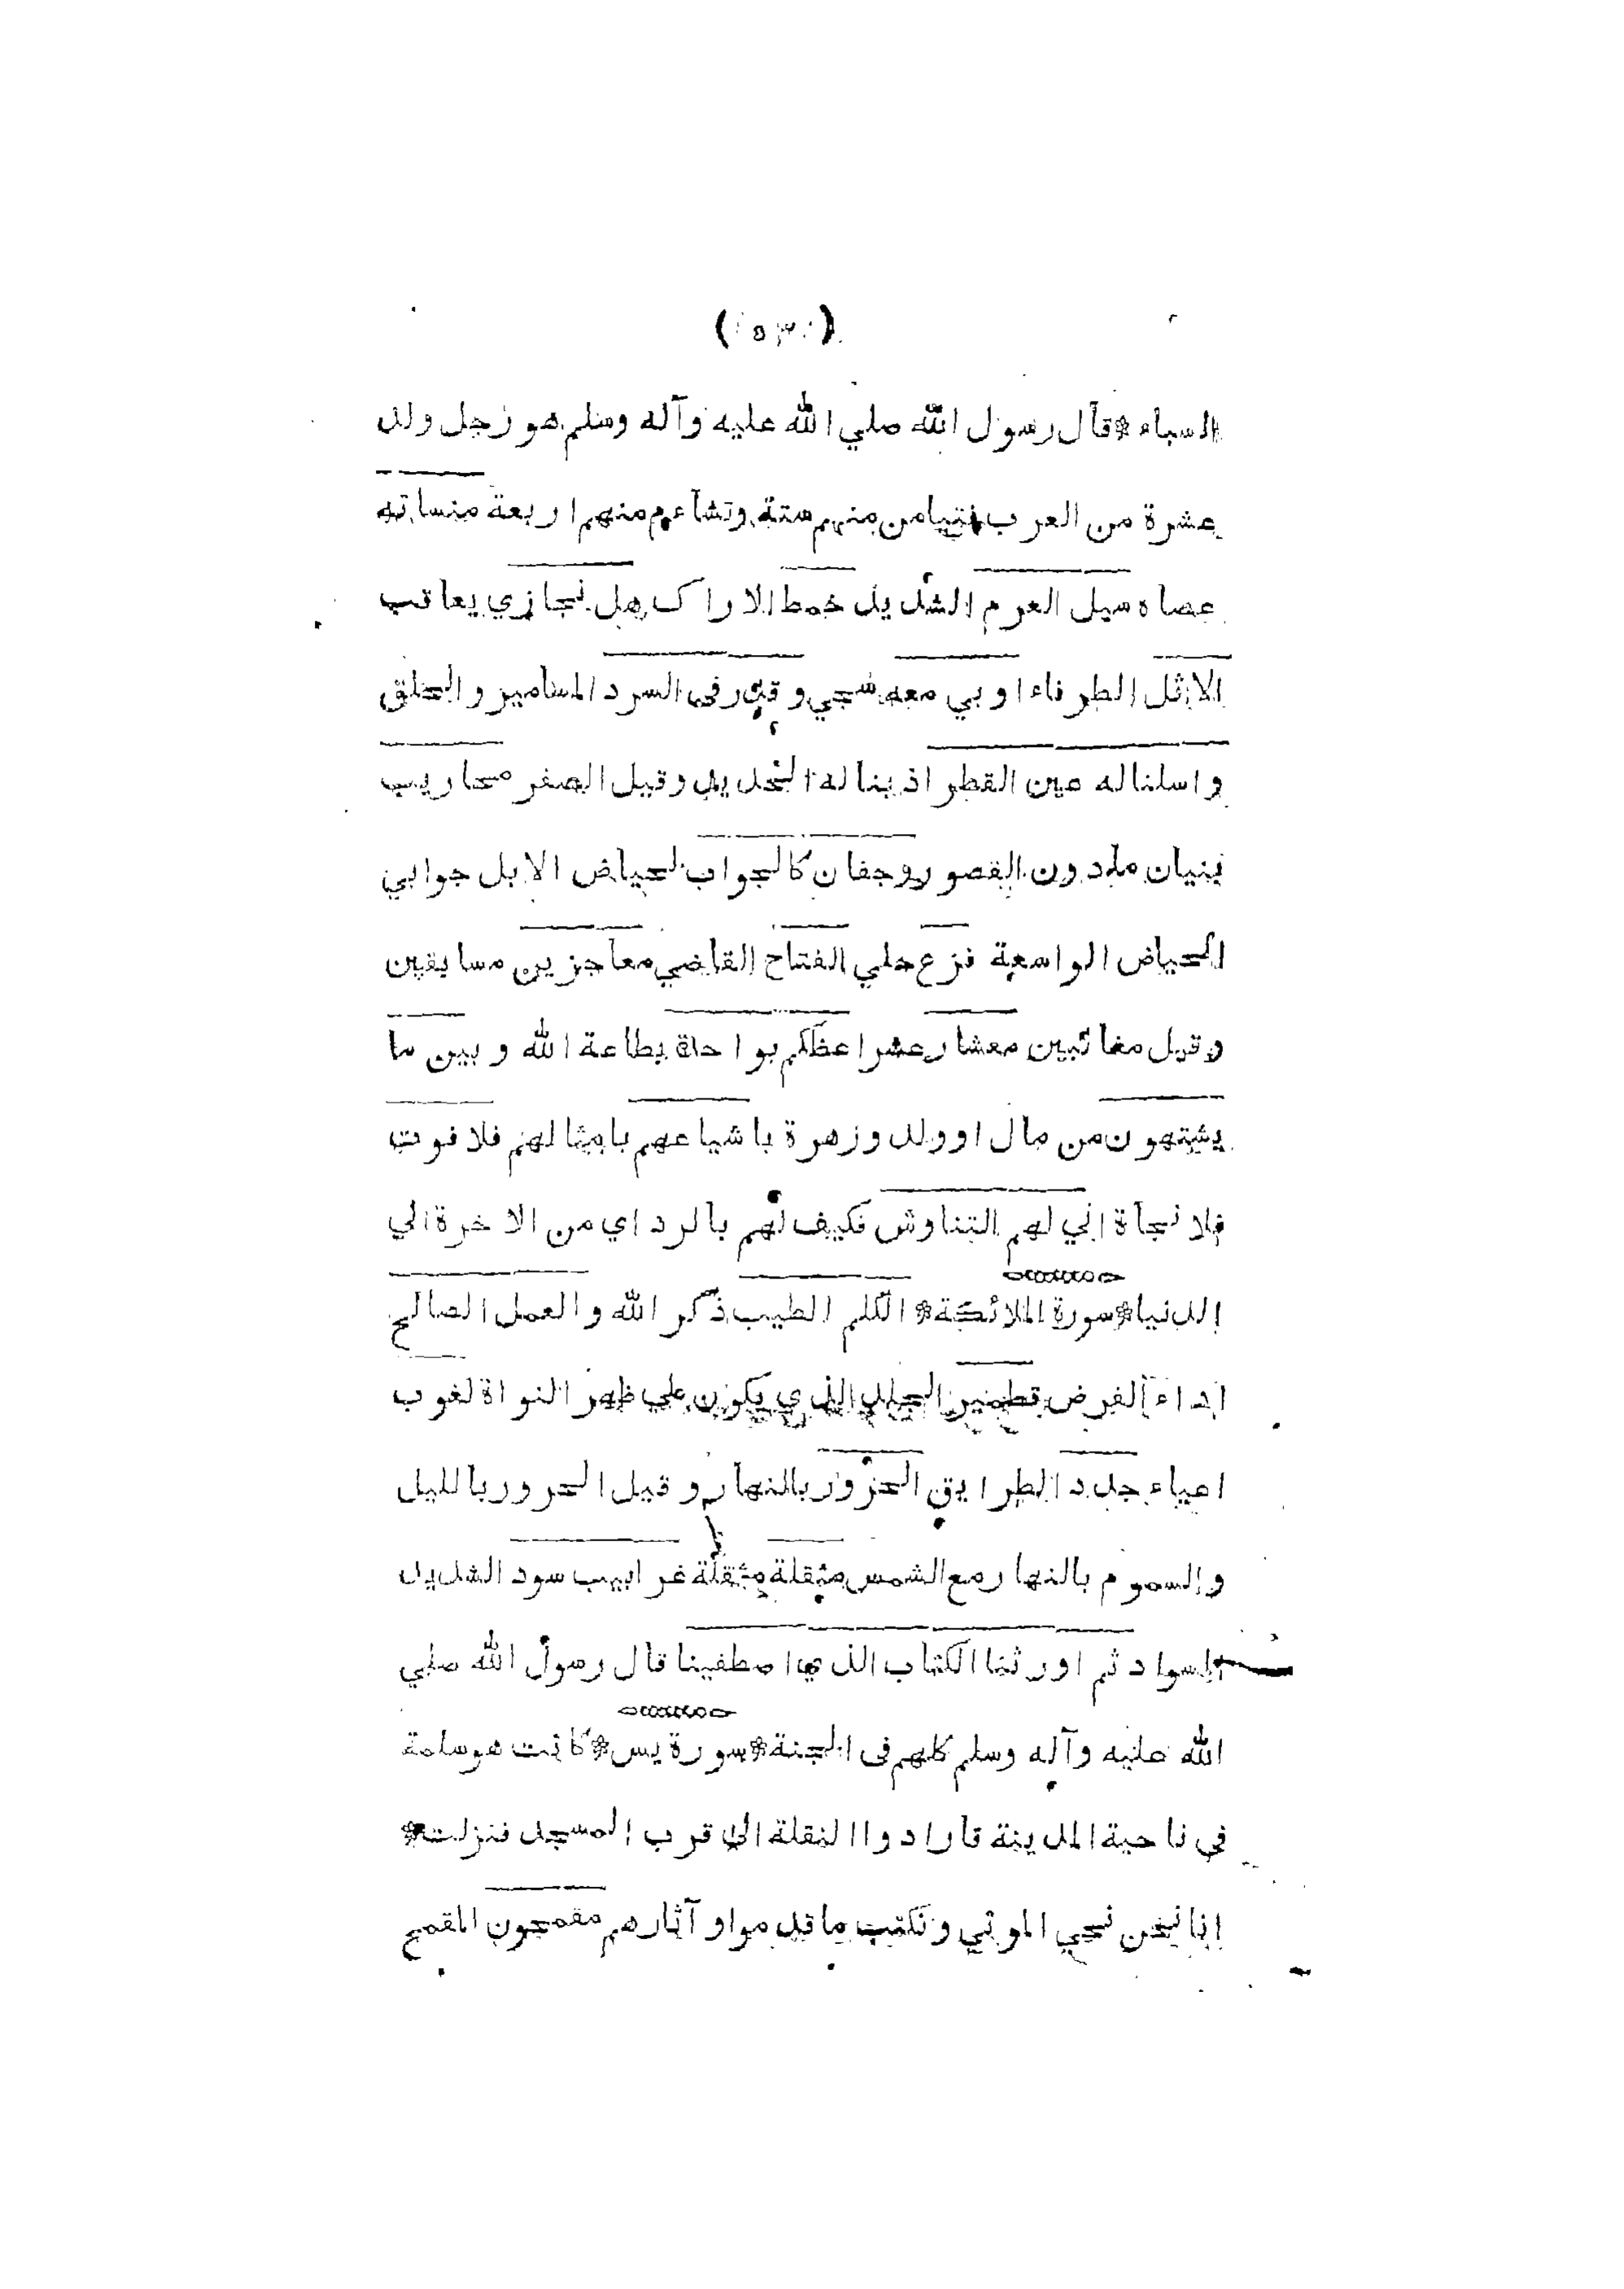 (٥٣)
السباء * قال رسول الله صلي الله عليه وآله وسلم هو رجل ولد
عشرة من العرب فتيامن منهم ستة وتشآءم منهم اربعة منساته
عصاه سيل العرم الشديد خمط الاراك هل نجازي يعاقب
الاثل الطرفاء اوبي معه سبحي وقدر فى السرد المسامير والحلق
واسلنا له عين القطر اذبنا له الحديد وقيل الصفر محاريب
بنيان مادون القصور وجفان كالجواب لحياض الابل جوابي
الحياض الواسعة فزع جلي الفتاح القاضي معاجزين مسابقين
وقيل مغائبين معشار عشر اعظكم بواحدة بطاعة الله وبين ما
يشتهون من مال او ولد وزهرة باشياعهم بامثالهم فلا فوت
فلا نجاة اني لهم التناوش فكيف لهم بالرد اي من الاخرة الي
الدنيا * سورة الملائكة * الكلم الطيب ذكر الله والعمل الصالح
اداء الفرض قطمير الجلد الذي يكون علي ظهر النواة لغوب
اعياء جدد الطرايق الحرور بالنهار وقيل الحرور بالليل
والسموم بالنهار مع الشمس مثقلة مثقلة غرابيب سود الشديد
السواد ثم اورثنا الكتاب الذي اصطفينا قال رسول الله صلي
الله عليه وآله وسلم كلهم فى الجنة * سورة يس * كانت هو سلمة
في ناحية المدينة فارادوا النقلة الى قرب المسجد فنزلت *
انا نحن نحي الموتي ونكتب ما قدموا وآثارهم مقمحون المقمح